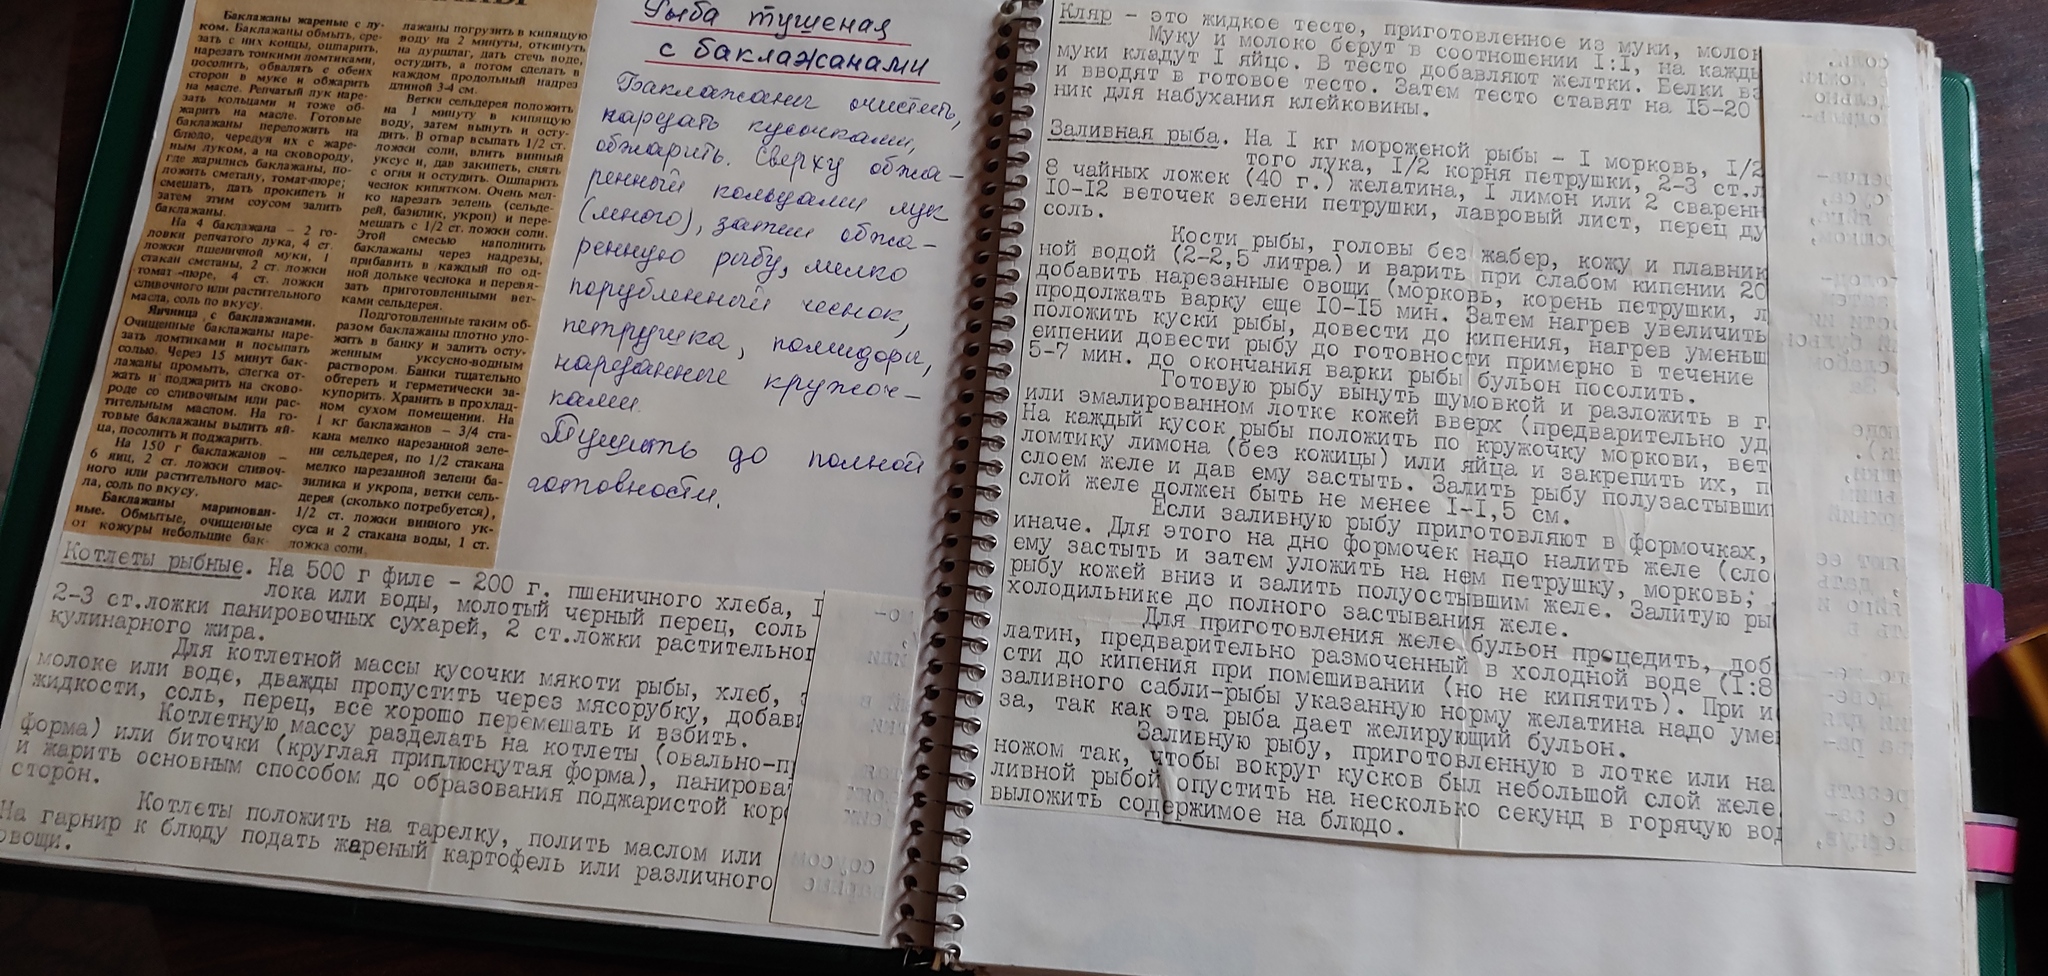 Баклажаны жареные с лу-
ком. Баклажаны обмыть, сре-
зать с них концы, ошпарить,
нарезать тонкими ломтиками,
посолить, обвалять с обеих
сторон в муке и обжарить
на масле. Репчатый лук наре-
зать кольцами и тоже об-
жарить на масле. Готовые
баклажаны переложить на
блюдо, чередуя их с жаре-
ным луком, а на сковороду,
где жарились баклажаны, по-
ложить сметану, томат-пюре;
смешать, дать прокипеть и
затем этим соусом залить
баклажаны.
На 4 баклажана – 2 го-
ловки репчатого лука, 4 ст.
ложки пшеничной муки, 1
стакан сметаны, 2 ст. ложки
томат-пюре, 4 ст. ложки
сливочного или растительного
масла, соль по вкусу.
Яичница с баклажанами.
Очищенные баклажаны наре-
зать ломтиками и посыпать
солью. Через 15 минут бак-
лажаны промыть, слегка от-
жать и поджарить на сково-
роде со сливочным или рас-
тительным маслом. На го-
товые баклажаны вылить яй-
ца, посолить и поджарить.
На 150 г баклажанов –
6 яиц, 2 ст. ложки сливоч-
ного или растительного мас-
ла, соль по вкусу.
Баклажаны маринован-
ные. Обмытые, очищенные
от кожуры небольшие бак-
лажаны погрузить в кипящую
воду на 2 минуты, откинуть
на дуршлаг, дать стечь воде,
остудить, а потом сделать в
каждом продольный надрез
длиной 3-4 см.
Ветки сельдерея положить
на 1 минуту в кипящую
воду, затем вынуть и осту-
дить. В отвар всыпать 1/2 ст.
ложки соли, влить винный
уксус и, дав закипеть, снять
с огня и остудить. Ошпарить
чеснок кипятком. Очень мел-
ко нарезать зелень (сельде-
рей, базилик, укроп) и пере-
мешать с 1/2 ст. ложки соли.
Этой смесью наполнить
баклажаны через надрезы,
прибавить в каждый по од-
ной дольке чеснока и перевя-
зать приготовленными вет-
ками сельдерея.
Подготовленные таким об-
разом баклажаны плотно уло-
жить в банку и залить осту-
женным уксусно-водным
раствором. Банки тщательно
обтереть и герметически за-
купорить. Хранить в прохлад-
ном сухом помещении. На
1 кг баклажанов – 3/4 ста-
кана мелко нарезанной зеле-
ни сельдерея, по 1/2 стакана
мелко нарезанной зелени ба-
зилика и укропа, ветки сель-
дерея (сколько потребуется),
1/2 ст. ложки винного ук-
суса и 2 стакана воды, 1 ст.
ложка соли.
Рыба тушеная
с баклажанами
Баклажаны очистить,
нарезать кусочками,
обжарить. Сверху обжа-
ренный кольцами лук
(много), затем обжа-
ренную рыбу, мелко
порубленный чеснок,
петрушка, помидоры,
нарезанные кружоч-
ками.
Тушить до полной
готовности.
Котлеты рыбные. На 500 г филе - 200 г. пшеничного хлеба, I
лока или воды, молотый черный перец, соль
2-3 ст.ложки панировочных сухарей, 2 ст.ложки растительног
кулинарного жира.
Для котлетной массы кусочки мякоти рыбы, хлеб,
молоке или воде, дважды пропустить через мясорубку, добави
жидкости, соль, перец, все хорошо перемешать и взбить.
Котлетную массу разделать на котлеты (овально-п
форма) или биточки (круглая приплюснутая форма), панироват
и жарить основным способом до образования поджаристой кор
сторон.
Котлеты положить на тарелку, полить маслом или
На гарнир к блюду подать жареный картофель или различного
овощи.
Кляр - это жидкое тесто, приготовленное из муки, молок
Муку и молоко берут в соотношении I:I, на кажды
муки кладут I яйцо. В тесто добавляют желтки. Белки вз
и вводят в готовое тесто. Затем тесто ставят на 15-20
ник для набухания клейковины.
Заливная рыба. На I кг мороженой рыбы - I морковь, I/2
того лука, I/2 корня петрушки, 2-3 ст.л
8 чайных ложек (40 г.) желатина, I лимон или 2 сваренн
10-12 веточек зелени петрушки, лавровый лист, перец ду
соль.
Кости рыбы, головы без жабер, кожу и плавник
ной водой (2-2,5 литра) и варить при слабом кипении 20
добавить нарезанные овощи (морковь, корень петрушки, л
продолжать варку еще 10-15 мин. Затем нагрев увеличить
положить куски рыбы, довести до кипения, нагрев уменьш
еипении довести рыбу до готовности примерно в течение
5-7 мин. до окончания варки рыбы бульон посолить.
Готовую рыбу вынуть шумовкой и разложить в г
или эмалированном лотке кожей вверх (предварительно уд
На каждый кусок рыбы положить по кружочку моркови, вет
ломтику лимона (без кожицы) или яйца и закрепить их, п
слоем желе и дав ему застыть. Залить рыбу полузастывши
слой желе должен быть не менее I-I,5 см.
Если заливную рыбу приготовляют в формочках,
иначе. Для этого на дно формочек надо налить желе (сло
ему застыть и затем уложить на нем петрушку, морковь;
рыбу кожей вниз и залить полуостывшим желе. Залитую ры
холодильнике до полного застывания желе.
Для приготовления желе бульон процедить, доб
латин, предварительно размоченный в холодной воде (I:8
сти до кипения при помешивании (но не кипятить). При и
заливного сабли-рыбы указанную норму желатина надо уме
за, так как эта рыба дает желирующий бульон.
Заливную рыбу, приготовленную в лотке или на
ножом так, чтобы вокруг кусков был небольшой слой желе
ливной рыбой опустить на несколько секунд в горячую вод
выложить содержимое на блюдо.